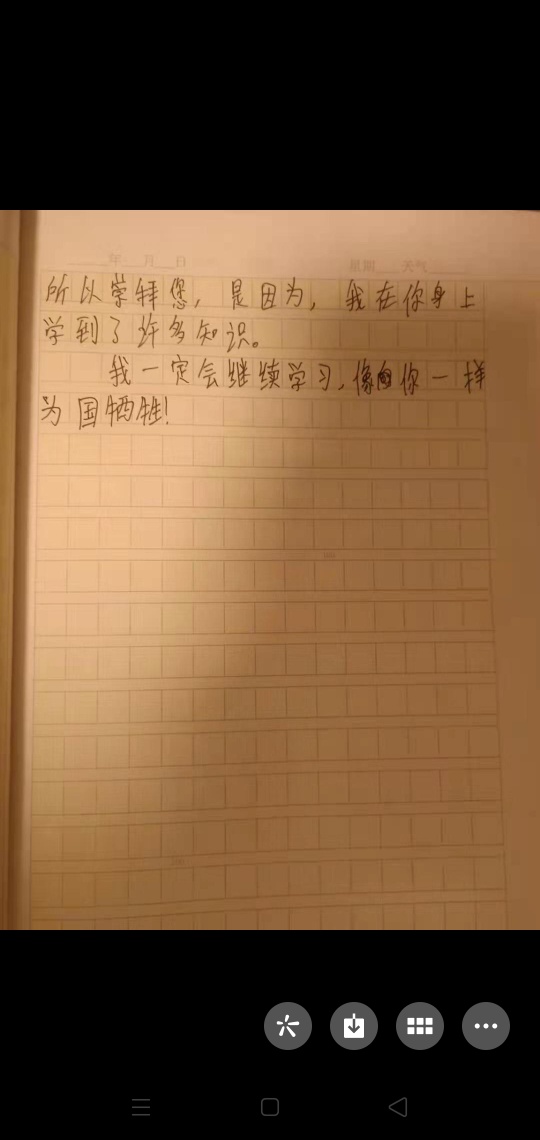 年 月 日 星期 天气
所以崇拜您，是因为，我在你身上
学到了许多知识。
我一定会继续学习，像你一样
为国牺牲！